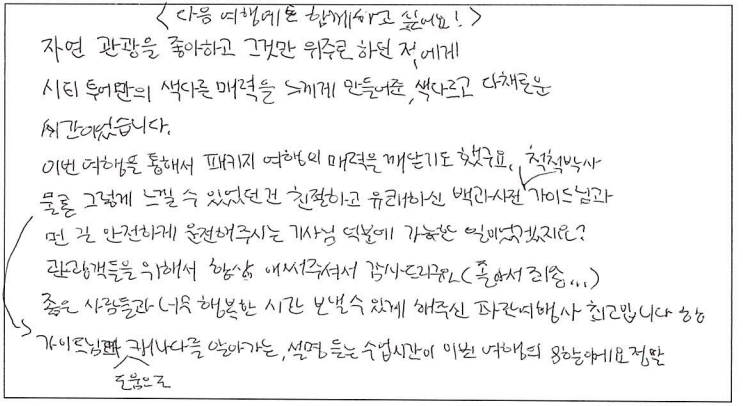 <다음 여행에도 함께하고 싶어요!>
자연 관광을 좋아하고 그것만 위주로 하던 저에게
시티 투어만의 색다른 매력을 느끼게 만들어준, 색다르고 다채로운
시간이었습니다.
이번 여행을 통해서 패키지 여행의 매력을 깨닫기도 했구요, 척척박사
물론 그렇게 느낄 수 있었던 건 친절하고 유쾌하신 백과사전 가이드님과
먼 길 안전하게 운전해주시는 기사님 덕분에 가능한 일이었겠지요?
관광객들을 위해서 항상 애써주셔서 감사드리구요 (졸아서 죄송...)
좋은 사람들과 너무 행복한 시간 보낼 수 있게 해주신 파란여행사 최고입니다
가이드님 캐나다를 알아가는, 설명 듣는 수업시간이 이번 여행의 8할이에요 정말
도움으로